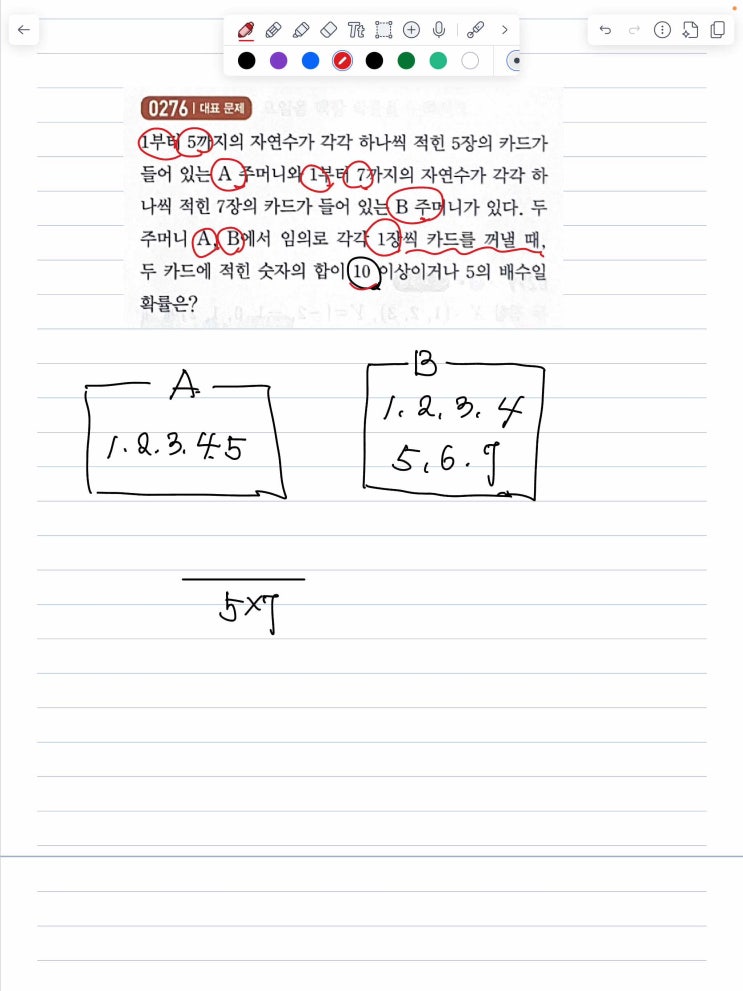 Tt
0276 | 대표 문제
1부터 5까지의 자연수가 각각 하나씩 적힌 5장의 카드가
들어 있는 A 주머니와 1부터 7까지의 자연수가 각각 하
나씩 적힌 7장의 카드가 들어 있는 B 주머니가 있다. 두
주머니 A, B에서 임의로 각각 1장씩 카드를 꺼낼 때,
두 카드에 적힌 숫자의 합이 10 이상이거나 5의 배수일
확률은?
A
1. 2. 3. 4. 5
B
1. 2. 3. 4
5. 6. 7
5×7